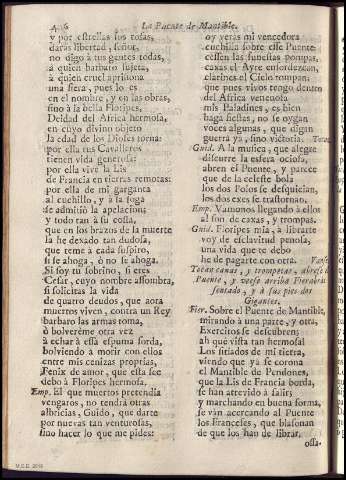 La Puente de Mantible.
y por estrellas sus rosas,
daràs libertad, señor,
no digo à tus gentes todas,
à quien barbaro sujeta,
à quien cruel aprisiona
una fiera, pues lo es
en el nombre, y en las obras,
sino à la bella Floripes,
Deidad del Africa hermosa,
en cuyo divino objeto
la edad de los Dioses torna:
por ella tus Cavalleros
tienen vida generosa:
por ella vive la Lis
de Francia en tierras remotas:
por ella de mi garganta
al cuchillo, y à la soga
se admitiò la apelacion;
y todo tan à su costa,
que en los brazos de la muerte
la he dexado tan dudosa,
que teme à cada suspiro,
si se ahoga, ò no se ahoga.
Si soy tu sobrino, si eres
Cesar, cuyo nombre assombra,
si solicitas la vida
de quatro deudos, que aora
muertos viven, contra un Rey
barbaro las armas toma,
ò bolverème otra vez
à echar à essa espuma sorda,
bolviendo à morir con ellos
entre mis cenizas proprias,
Fenix de amor, que esta fee
debo à Floripes hermosa.
Emp. El que muertos pretendia
vengaros, no tendrà otras
albricias, Guido, que darte
por nuevas tan venturosas,
sino hacer lo que me pides:
oy veràs mi vencedora
cuchilla sobre esse Puente:
cessen las funestas pompas,
caxas el Ayre ensordezcan,
clarines el Cielo rompan;
que pues vivos tengo dentro
del Africa venenosa
mis Paladines, es bien
haga fiestas, no se oygan
voces algunas, que digan
guerra ya, sino victoria. Tocan
Guid. A la musica, que alegre
discurre la esfera ociosa,
abren el Puente, y parece
que de la celeste bola
los dos Polos se desquician,
los dos exes se trastornan.
Emp. Vamonos llegando à ellos
al son de caxas, y trompas.
Guid. Floripes mia, à librarte
voy de esclavitud penosa,
una vida que te debo
he de pagarte con otra. Vanse
Tocan caxas, y trompetas, abrese la
Puente, y veese arriba Fierabràs
sentado, y à sus pies dos
Gigantes.
Fier. Sobre el Puente de Mantible,
mirando à una parte, y otra,
Exercitos se descubren;
ah què vista tan hermosa!
Los sitiados de mi tierra,
viendo que ya se corona
el Mantible de Pendones,
que la Lis de Francia borda,
se han atrevido à salir;
y marchando en buena forma,
se vàn acercando al Puente
los Franceses, que blasonan
de que los han de librar.
ossa-
M.C.D. 2018